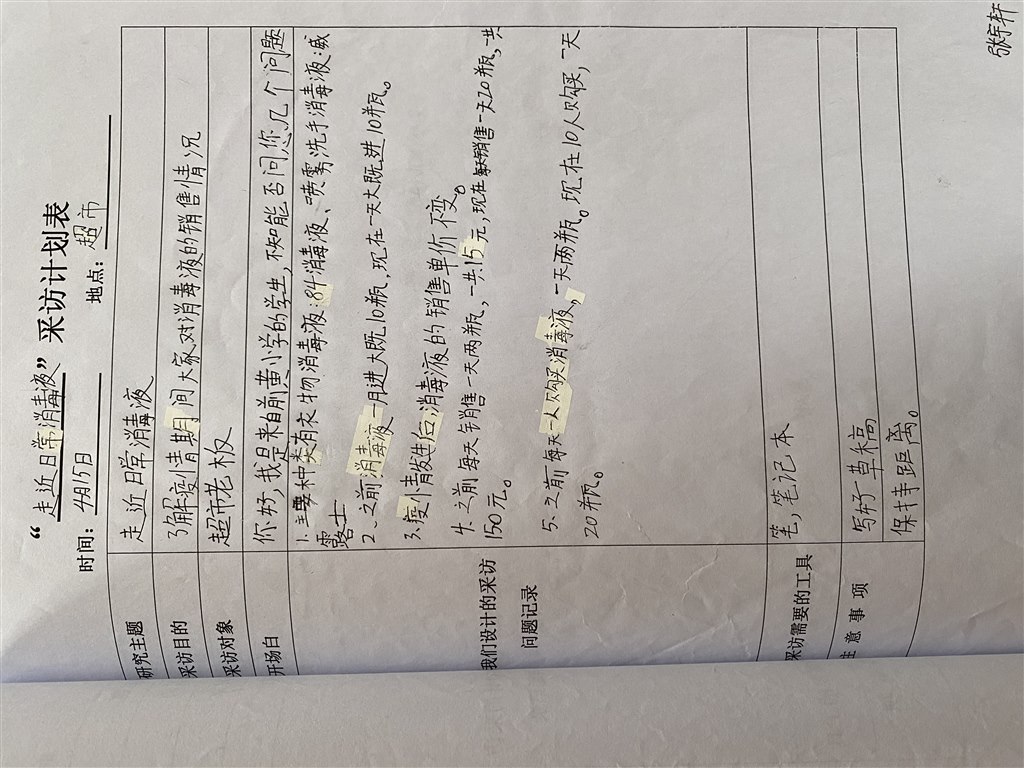 张宇轩
“走近日常消毒液”采访计划表
时间：4月15日 地点：超市
研究主题 走近日常消毒液
采访目的 了解疫情期间大家对消毒液的销售情况
采访对象 超市老板
开场白 你好，我是来自前黄小学的学生，不知能否问您几个问题
我们设计的采访问题记录
1. 主要种类有衣物消毒液：84消毒液、喷雾洗手消毒液：威
露士
2、之前消毒液一月进大既10瓶，现在一天大既进10瓶。
3、疫情发生后消毒液的销售单价不变。
4、之前每天销售一天两瓶，一共15元，现在每天销售一天20瓶，一共
150元。
5、之前每天一人购买消毒液，一天两瓶。现在10人购买，一天
20瓶。
采访需要的工具 笔，笔记本
注意事项 写好草稿
保持距离。